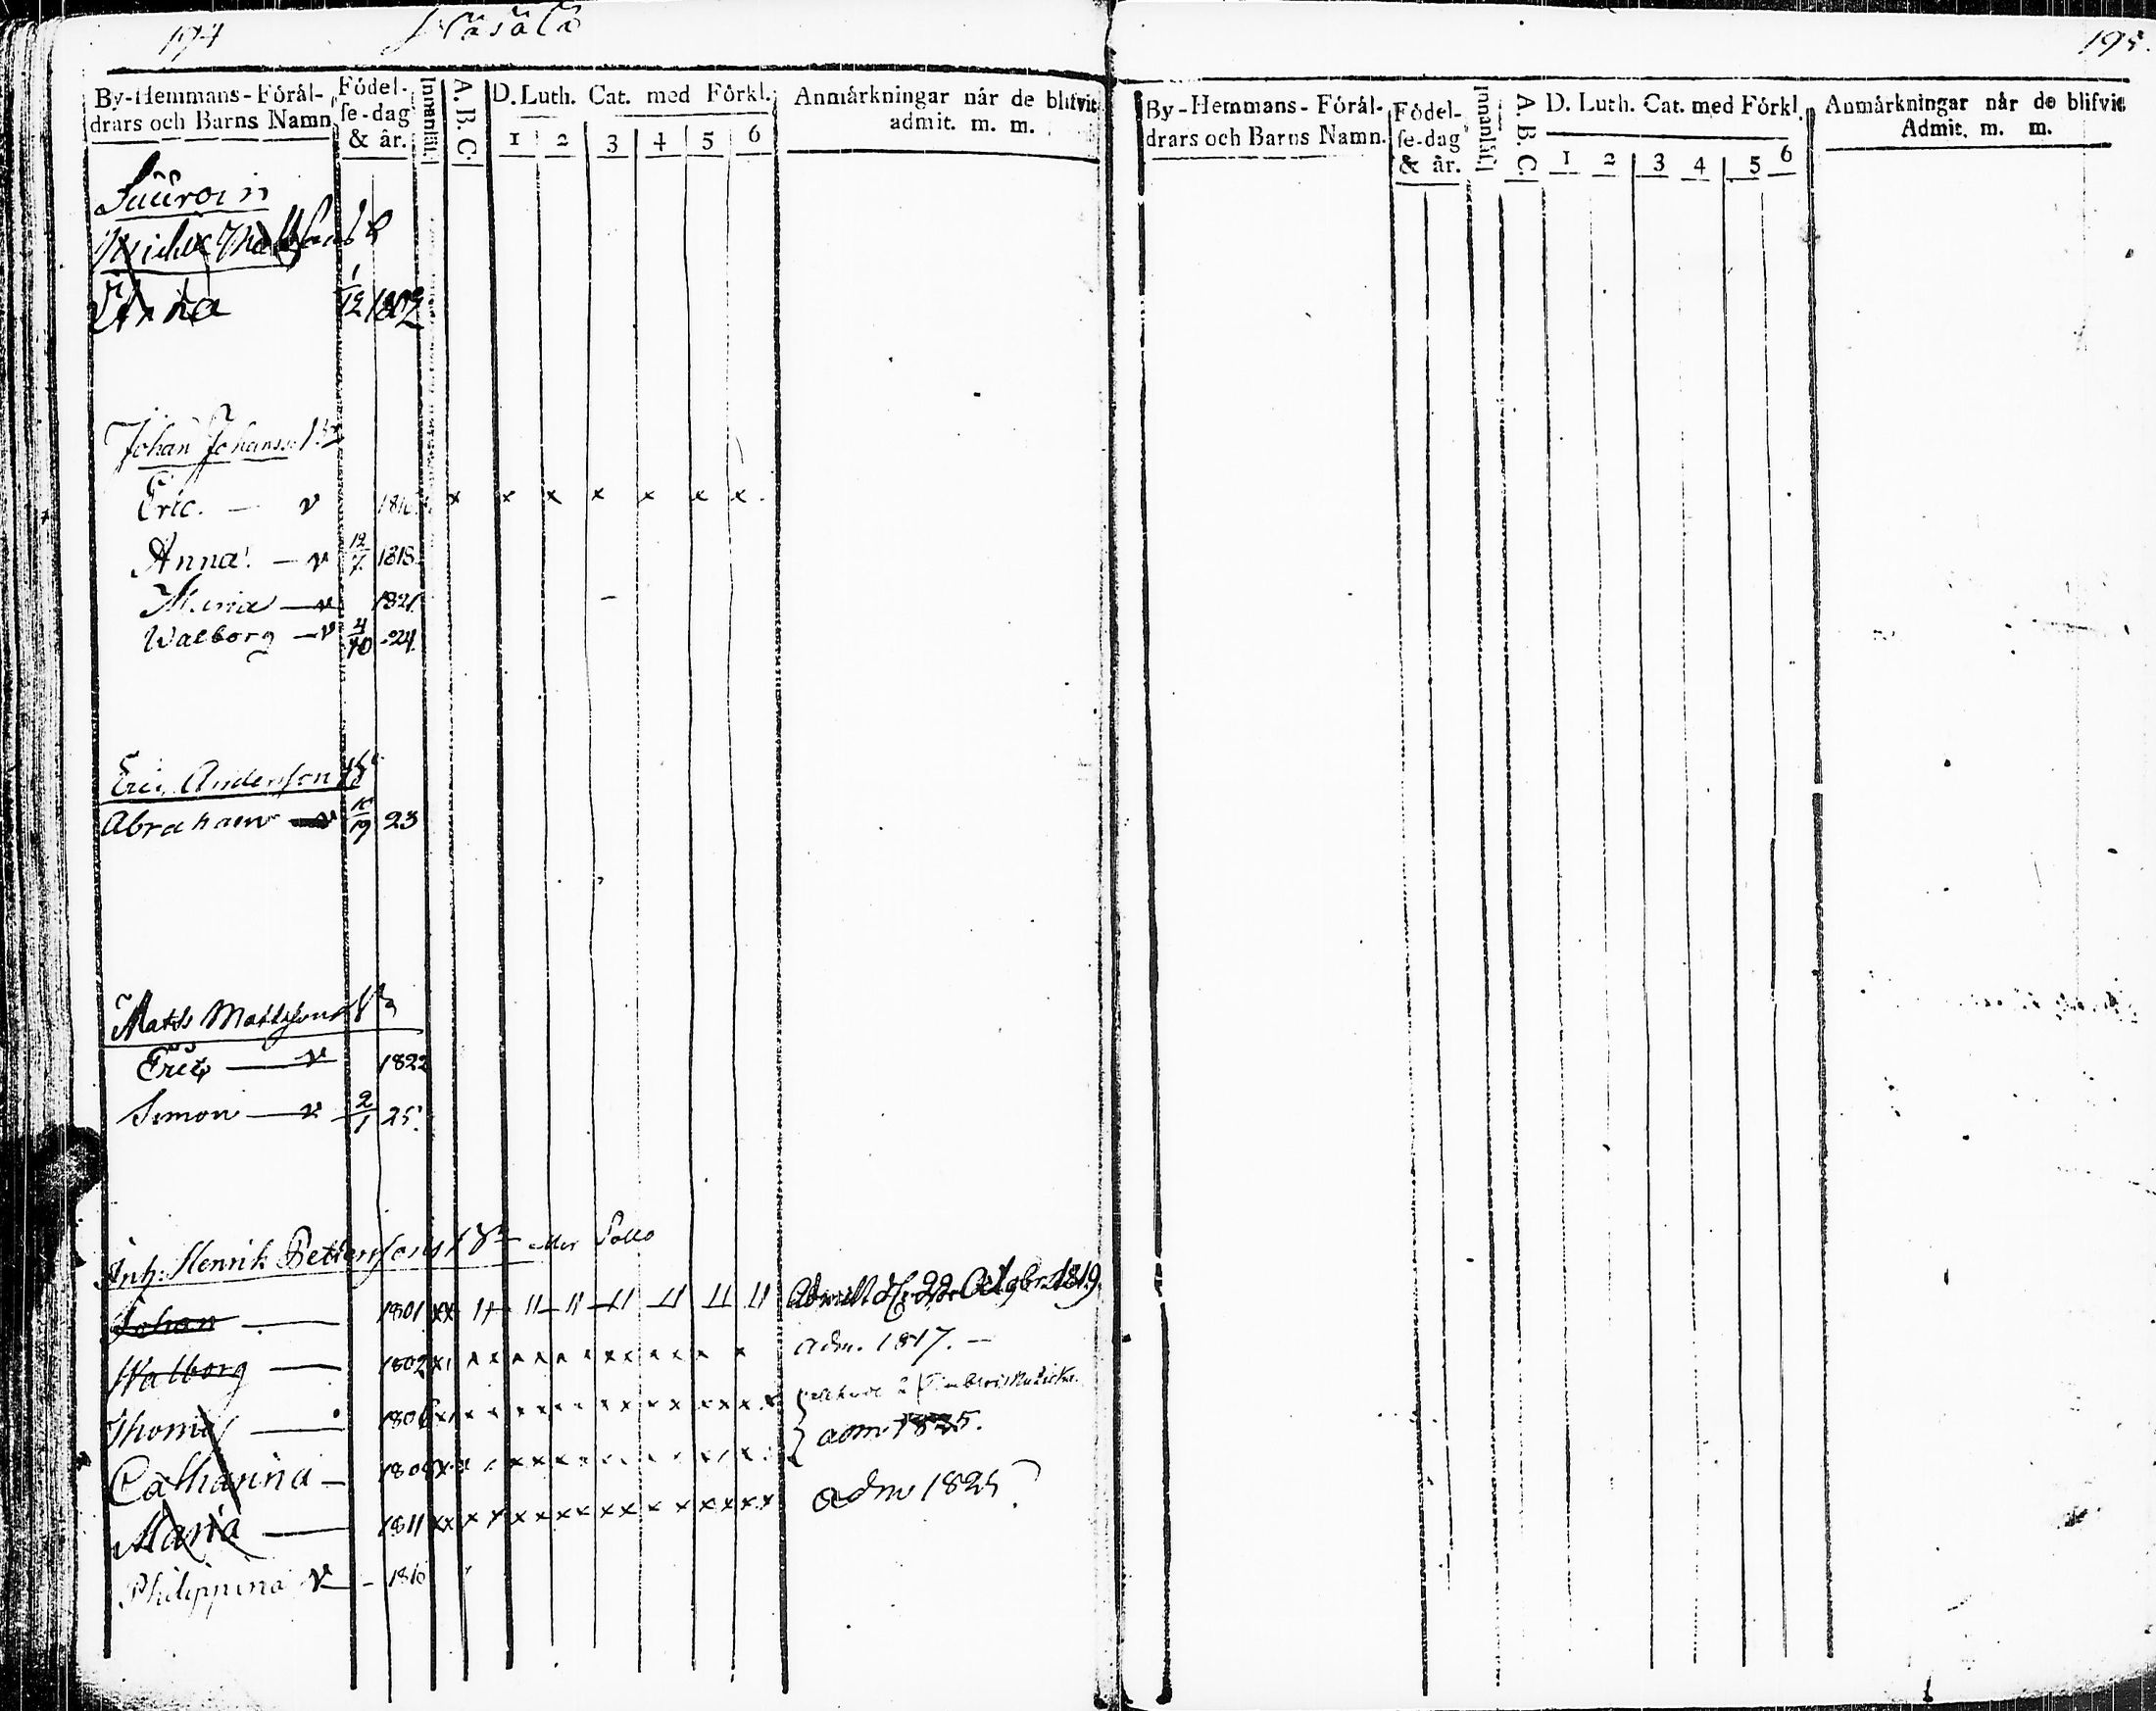 194
195.
By-Hemmans-Förål-
drars och Barns Namn
Födel-
se-dag
& år.
Innanläs.
A. B. C.
D. Luth. Cat. med Förkl.
1 2 3 4 5 6
Anmårkningar når de blifvit
admit. m. m.
Johan Johanss:
Eric. — v x x x x x x x
Anna — v 12/7 1818
Maria — v 1821
Walborg — v 4/10 -24
Eric Andersson
Abraham — v 10/19 23
Matts Mattsson
Eric — v 1822
Simon — v 2/1 25.
Inh: Henrik Pettersons
Johan — 1801 xx 11 11 11 11 11 11 11 Admitt d. 22 Octobr. 1819.
Walborg — 1802 adm. 1817. —
Thomas — 1806
Catharina — 1808
adm 1825.
Maria — 1811 adm 1825
Philippina v — 1816
By-Hemmans-Förål-
drars och Barns Namn.
Födel-
se-dag
& år.
Innanläs.
A. B. C.
D. Luth. Cat. med Förkl.
1 2 3 4 5 6
Anmårkningar når de blifvit
Admit. m. m.